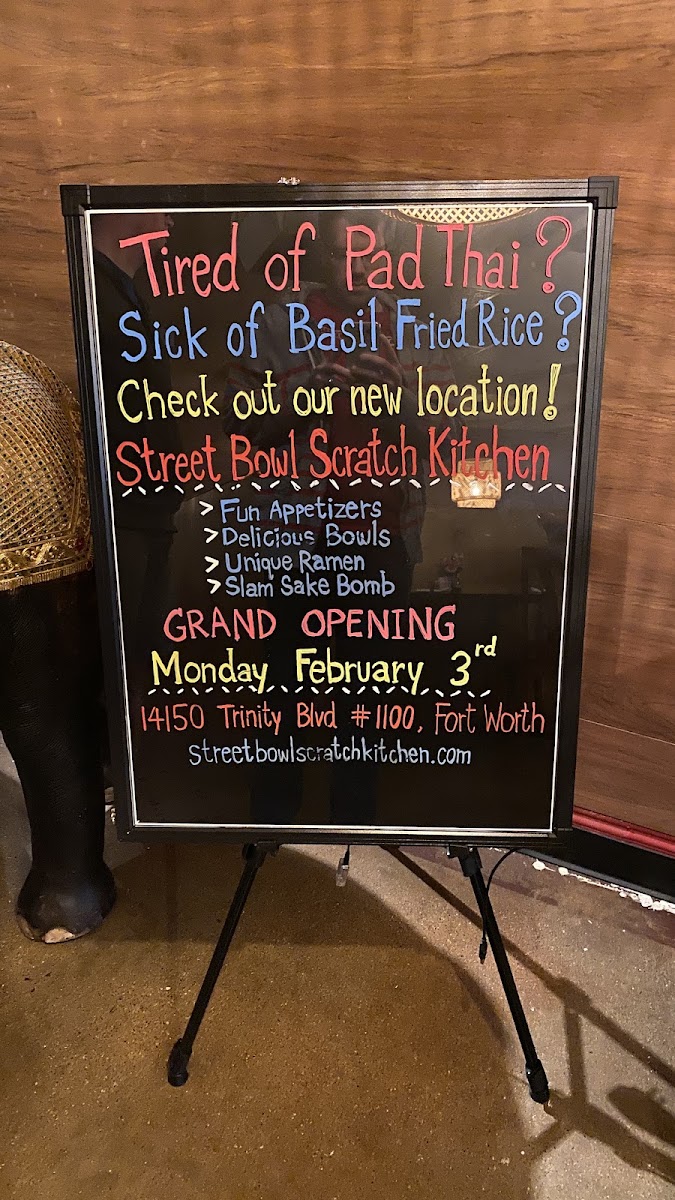 Tired of Pad Thai?
Sick of Basil Fried Rice?
Check out our new location!
Street Bowl Scratch Kitchen
> Fun Appetizers
> Delicious Bowls
> Unique Ramen
> Slam Sake Bomb
GRAND OPENING
Monday February 3rd
14150 Trinity Blvd #1100, Fort Worth
streetbowlscratchkitchen.com